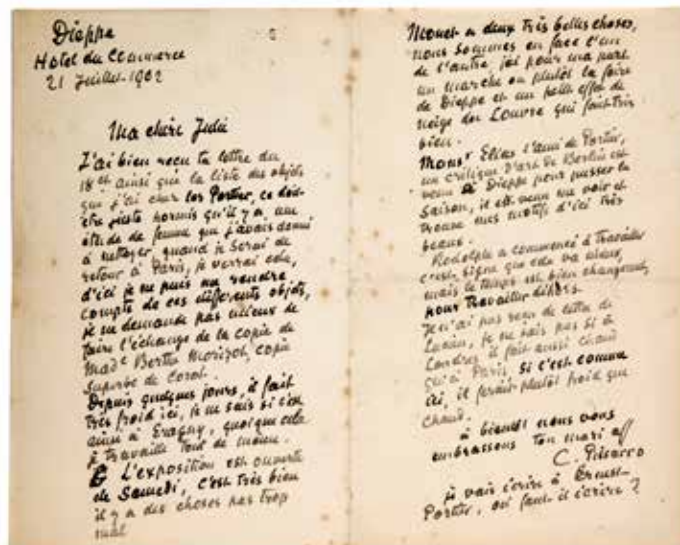 Dieppe
Hotel du Commerce
21 Juillet 1902
Ma chère Julie
J'ai bien reçu ta lettre du
18 et ainsi que la liste des objets
que j'ai chez les Portier, ce doit
être juste hormis qu'il y a une
étude de femme que j'avais donné
à nettoyer, quand je serai de
retour à Paris, je verrai cela,
d'ici je ne puis me rendre
compte de ces différents objets,
je ne demande pas mieux de
faire l'échange de la copie de
Made Berthe Morizot, copie
superbe de Corot.
Depuis quelques jours, il fait
très froid ici, je ne sais si c'est
ainsi à Eragny, quoique cela
je travaille tout de même.
L'exposition est ouverte
de Samedi, c'est très bien
il y a des choses pas trop
mal
Monet a deux très belles choses,
nous sommes en face l'un
de l'autre, j'ai pour ma part
un marché ou plutôt la foire
de Dieppe et un petit effet de
neige du Louvre qui fait très
bien.
Monsr Elias l'ami de Portier,
un critique d'art de Berlin est
venu à Dieppe pour passer la
saison, il est venu me voir et
trouve mes motifs d'ici très
beaux.
Rodolphe a commencé à travailler
c'est signe que cela va mieux,
mais le temps est bien changeant,
pour travailler dehors.
Je n'ai pas reçu de lettre de
Lucien, je ne sais pas si à
Londres il fait aussi chaud
qu'à Paris, si c'est comme
ici, il ferait plutôt froid que
chaud.
à bientôt nous vous
embrassons ton mari aff
C. Pissarro
je vais écrire à
Portier, où faut il écrire ?